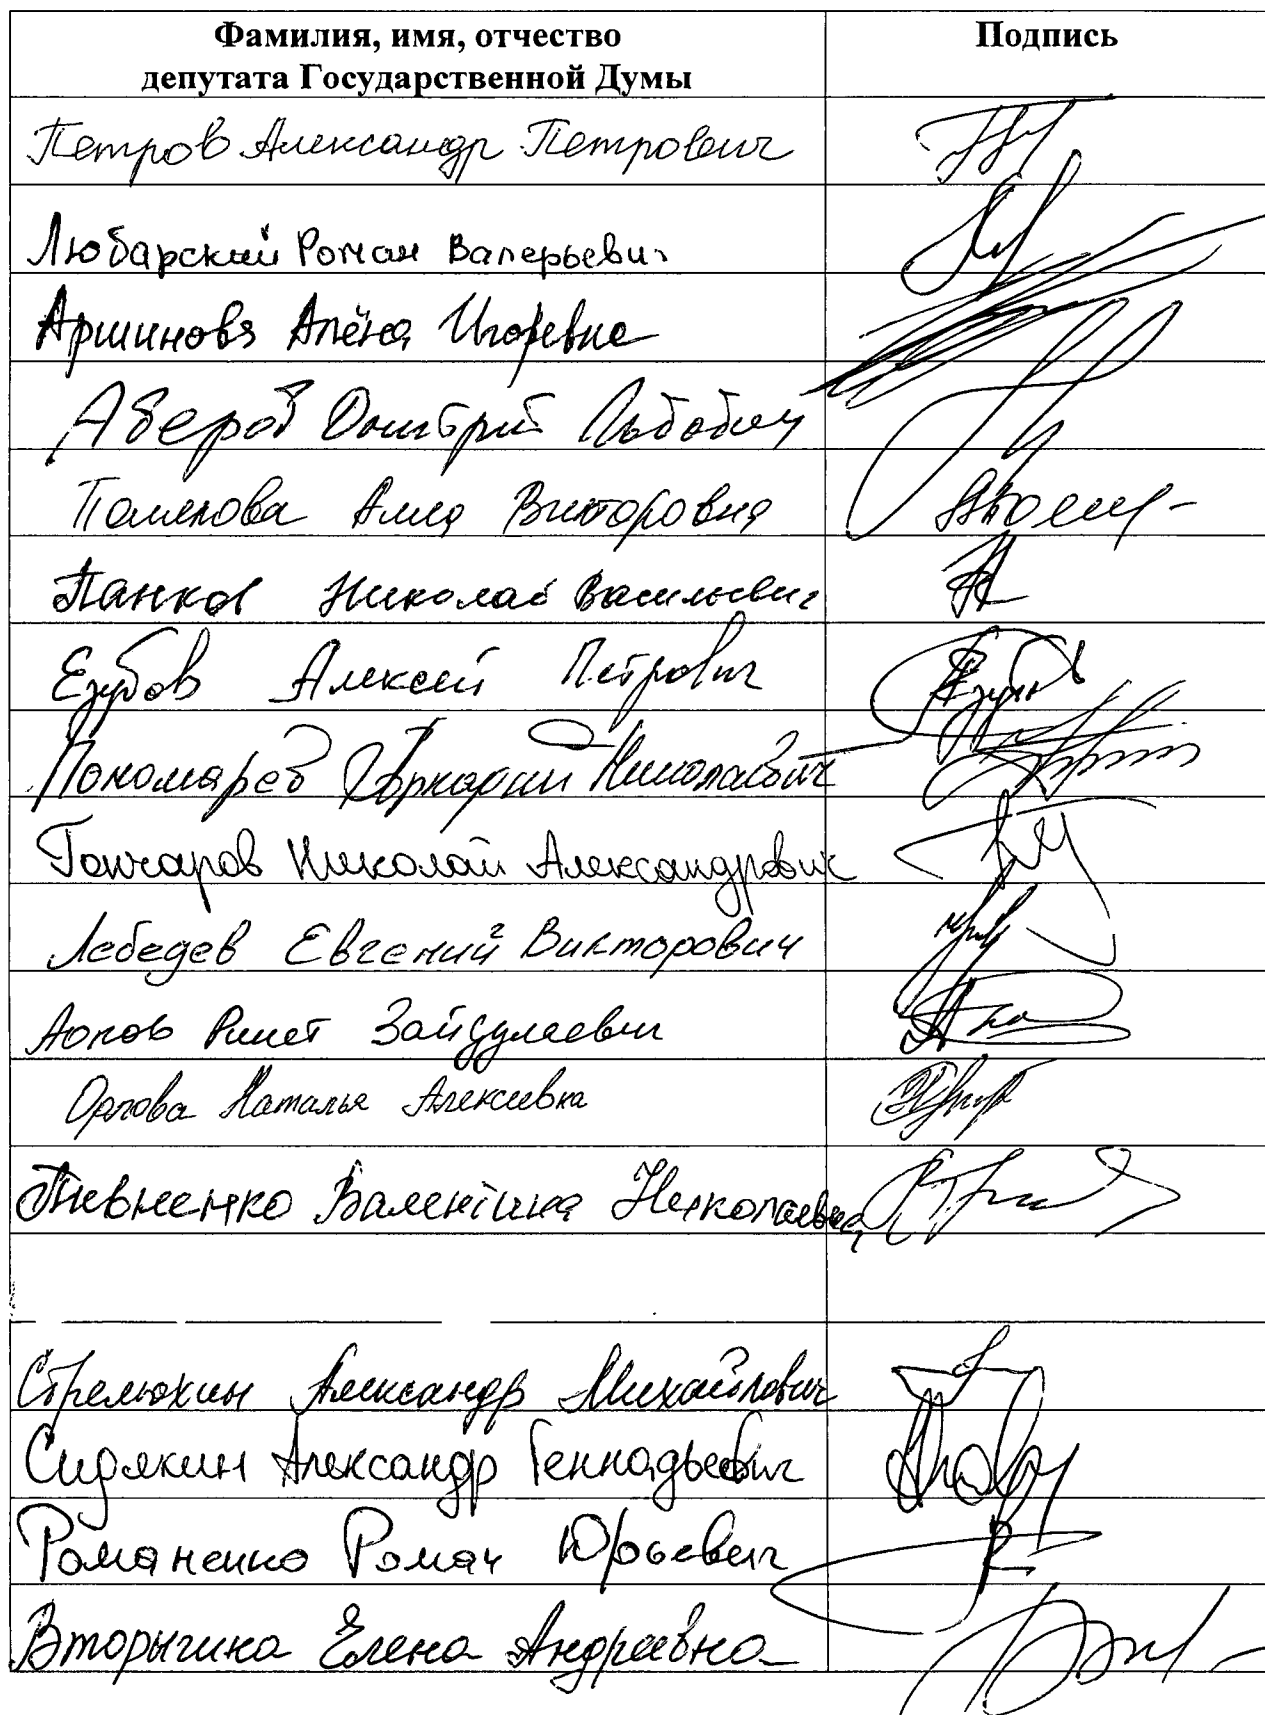 Фамилия, имя, отчество
депутата Государственной Думы
Подпись
Петров Александр Петрович
Любарский Роман Валерьевич
Аршинова Алёна Игоревна
Аверов Дмитрий Львович
Полякова Алла Викторовна
Панков Николай Васильевич
Езубов Алексей Петрович
Пономарев Аркадий Николаевич
Гончаров Николай Александрович
Лебедев Евгений Викторович
Аюпов Ринат Зайдулаевич
Орлова Наталья Алексеевна
Пивненко Валентина Николаевна
Стрелюхин Александр Михайлович
Сидякин Александр Геннадьевич
Романенко Роман Юрьевич
Вторыгина Елена Андреевна